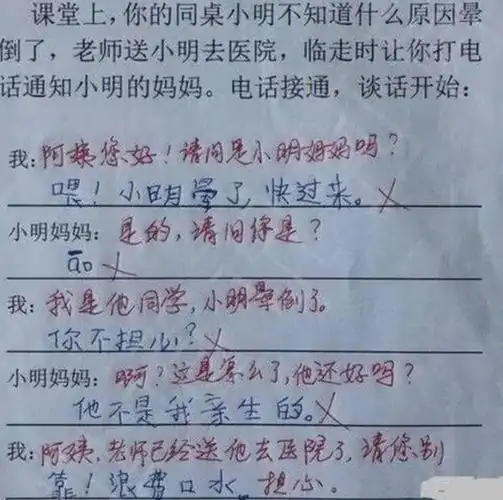 课堂上,你的同桌小明不知道什么原因晕
倒了,老师送小明去医院,临走时让你打电
话通知小明的妈妈。电话接通,谈话开始:
我:阿姨您好!请问是小明妈妈吗?
喂!小明晕了,快过来。
小明妈妈:是的,请问你是?
哦
我:我是他同学,小明晕倒了。
你不担心?
小明妈妈:啊?这是怎么了,他还好吗?
他不是我亲生的。
我:阿姨,老师已经送他去医院了,请您别
靠!浪费口水。担心。